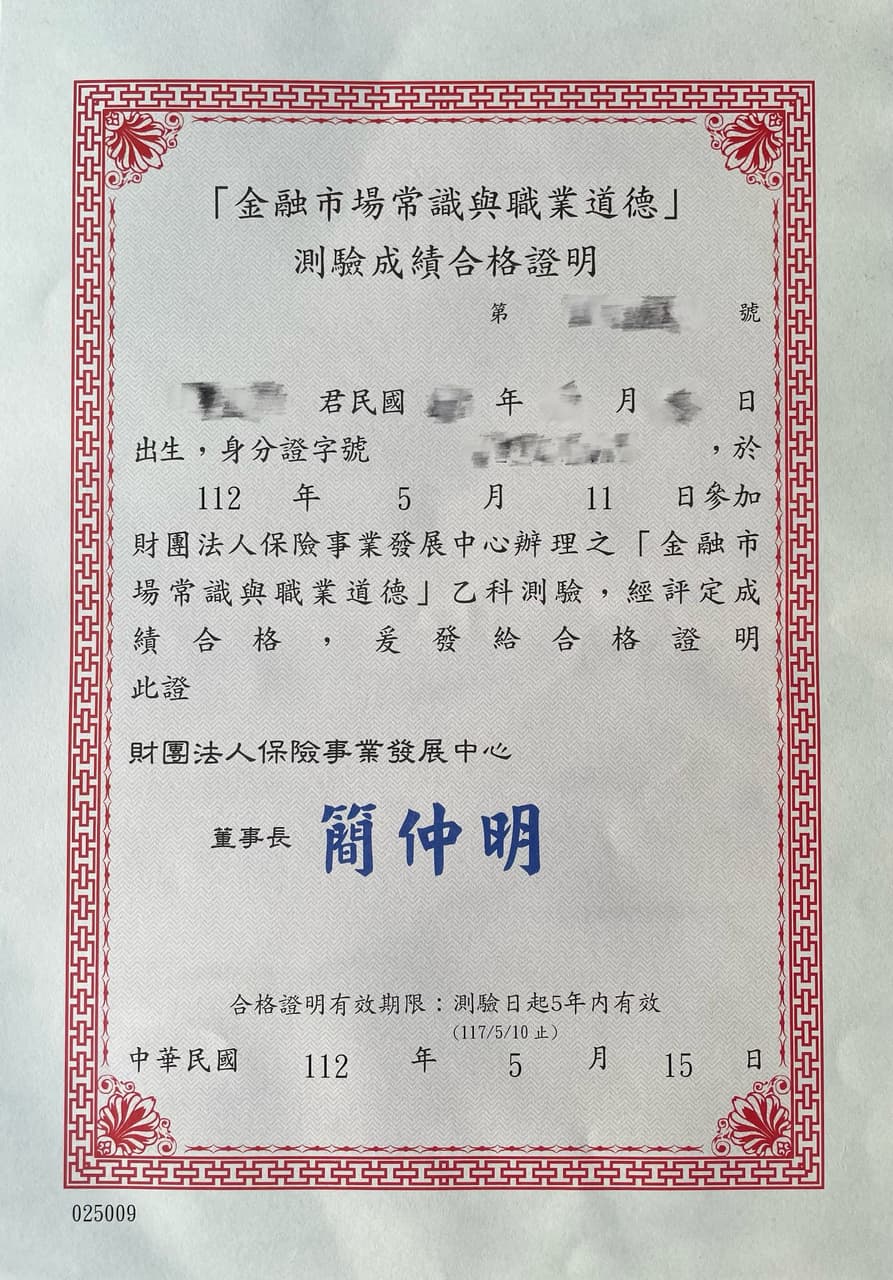 「金融市場常識與職業道德」
測驗成績合格證明
第 號
君民國 年 月 日
出生，身分證字號 ，於
112 年 5 月 11 日參加
財團法人保險事業發展中心辦理之「金融市
場常識與職業道德」乙科測驗，經評定成
績合格，爰發給合格證明
此證
財團法人保險事業發展中心
董事長 簡仲明
合格證明有效期限：測驗日起5年內有效
(117/5/10 止)
中華民國 112 年 5 月 15 日
025009